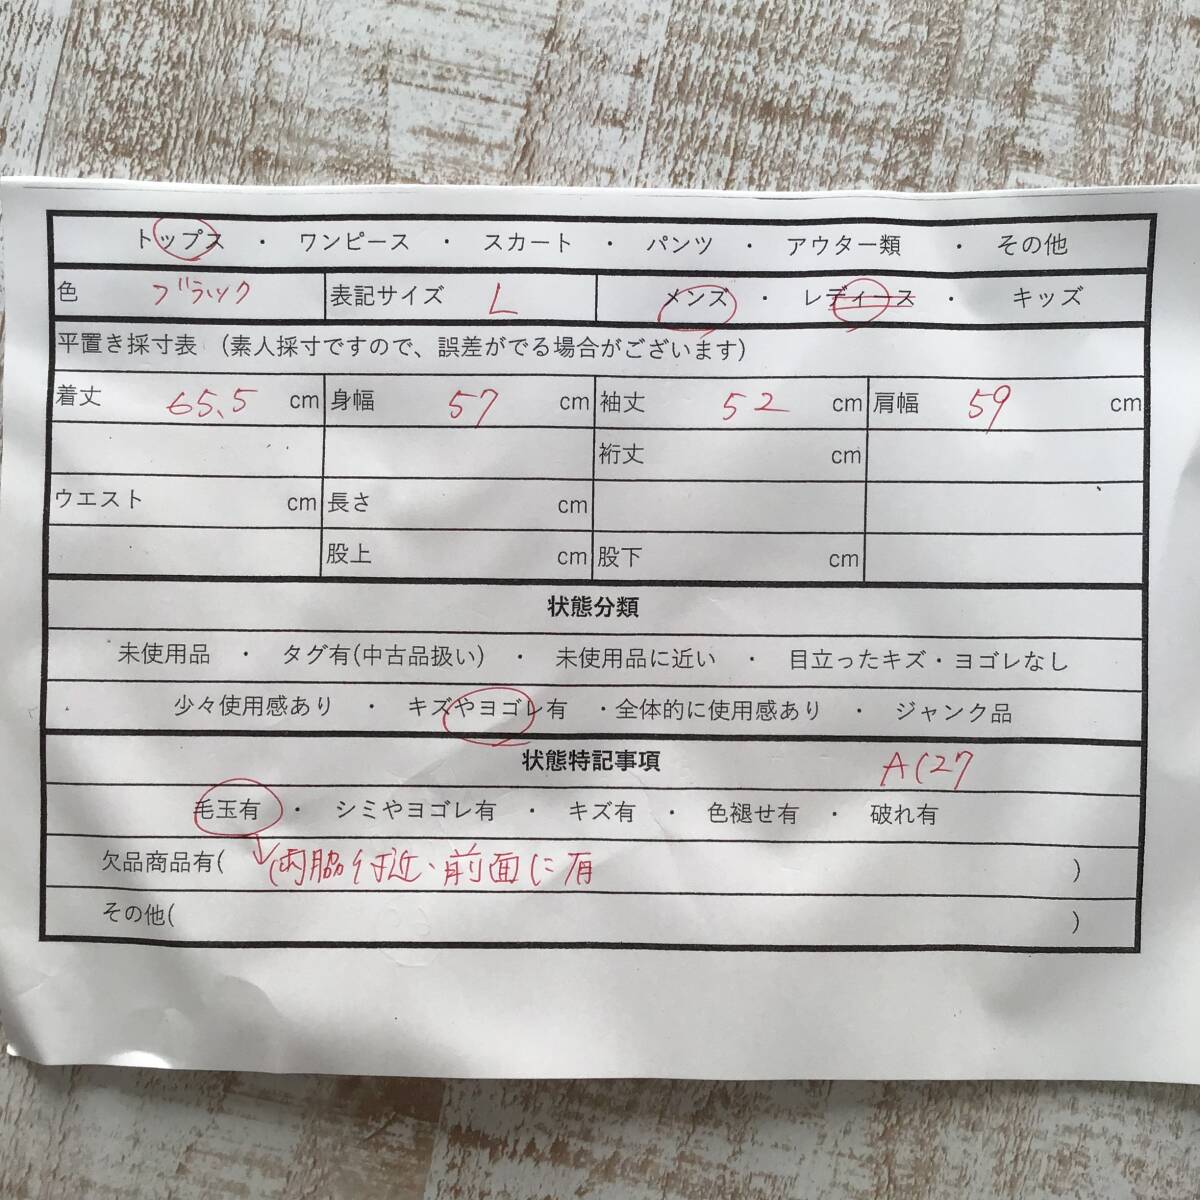 トップス ・ ワンピース ・ スカート ・ パンツ ・ アウター類 ・ その他
色 ブラック 表記サイズ L メンズ ・ レディース ・ キッズ
平置き採寸表 (素人採寸ですので、誤差がでる場合がございます)
着丈 65.5 cm 身幅 57 cm 袖丈 52 cm 肩幅 59 cm
裄丈 cm
ウエスト cm 長さ cm
股上 cm 股下 cm
状態分類
未使用品 ・ タグ有(中古品扱い) ・ 未使用品に近い ・ 目立ったキズ・ヨゴレなし
少々使用感あり ・ キズやヨゴレ有 ・全体的に使用感あり ・ ジャンク品
状態特記事項 A127
毛玉有 ・ シミやヨゴレ有 ・ キズ有 ・ 色褪せ有 ・ 破れ有
欠品商品有( (両脇付近・前面に有 )
その他( )